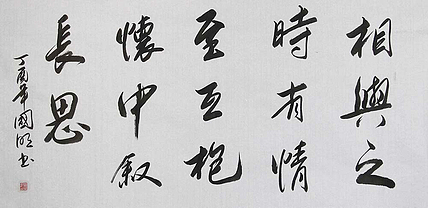 相與之
時有情
至互抱
懷中叙
長思
丁酉年國明书